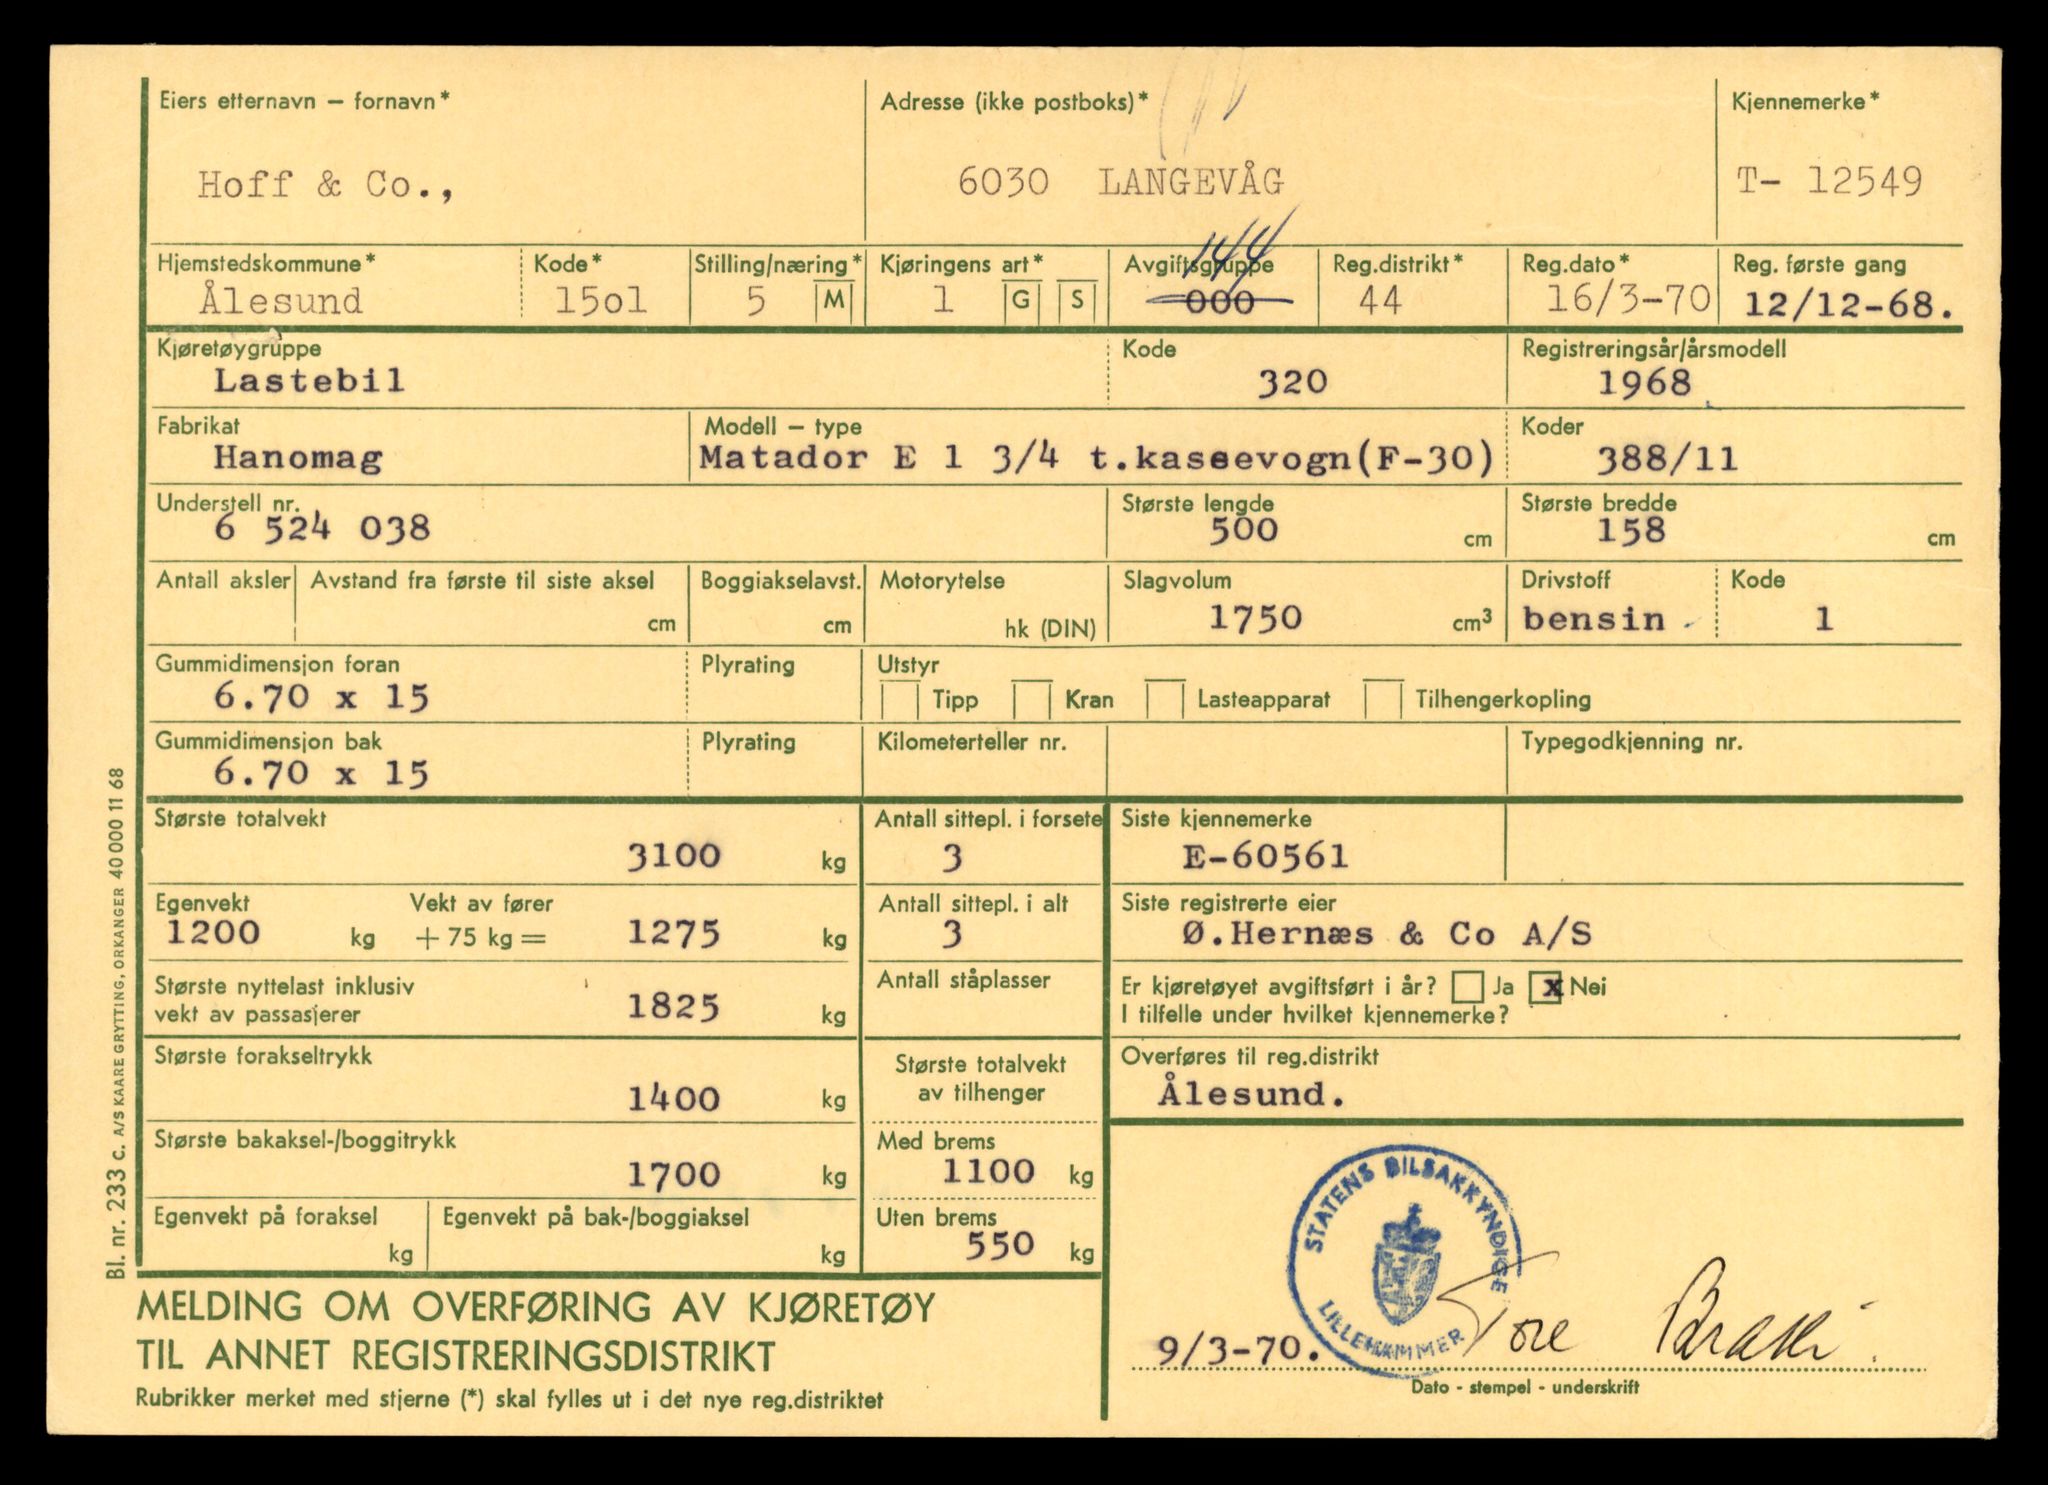 Eiers etternavn – fornavn* Adresse (ikke postboks)* Kjennemerke*
Hoff & Co., 6030 LANGEVÅG T- 12549
Hjemstedskommune* Kode* Stilling/næring* Kjøringens art* Avgiftsgruppe Reg.distrikt* Reg.dato* Reg. første gang
144
Ålesund 15o1 5 M 1 G S 000 44 16/3-70 12/12-68.
Kjøretøygruppe Kode Registreringsår/årsmodell
Lastebil 320 1968
Fabrikat Modell – type Koder
Hanomag Matador E 1 3/4 t.kassevogn(F-30) 388/11
Understell nr. Største lengde Største bredde
6 524 038 500 cm 158 cm
Antall aksler Avstand fra første til siste aksel Boggiakselavst. Motorytelse Slagvolum Drivstoff Kode
cm cm hk (DIN) 1750 cm3 bensin 1
Gummidimensjon foran Plyrating Utstyr
6.70 x 15 Tipp Kran Lasteapparat Tilhengerkopling
Gummidimensjon bak Plyrating Kilometerteller nr. Typegodkjenning nr.
6.70 x 15
Største totalvekt Antall sittepl. i forsete Siste kjennemerke
3100 kg 3 E-60561
Egenvekt Vekt av fører Antall sittepl. i alt Siste registrerte eier
1200 kg + 75 kg = 1275 kg 3 Ø.Hernæs & Co A/S
Største nyttelast inklusiv Antall ståplasser Er kjøretøyet avgiftsført i år? Ja x Nei
vekt av passasjerer 1825 kg I tilfelle under hvilket kjennemerke?
Største forakseltrykk Største totalvekt Overføres til reg.distrikt
1400 kg av tilhenger Ålesund.
Største bakaksel-/boggitrykk Med brems
1700 kg 1100 kg
Egenvekt på foraksel Egenvekt på bak-/boggiaksel Uten brems
kg kg 550 kg
STATENS BILSAKKYNDIGE
LILLEHAMMER
MELDING OM OVERFØRING AV KJØRETØY
TIL ANNET REGISTRERINGSDISTRIKT
9/3-70. Tore
Dato - stempel - underskrift
Rubrikker merket med stjerne (*) skal fylles ut i det nye reg.distriktet
Bl. nr. 233 c. A/S KAARE GRYTTING, ORKANGER 40 000 11 68